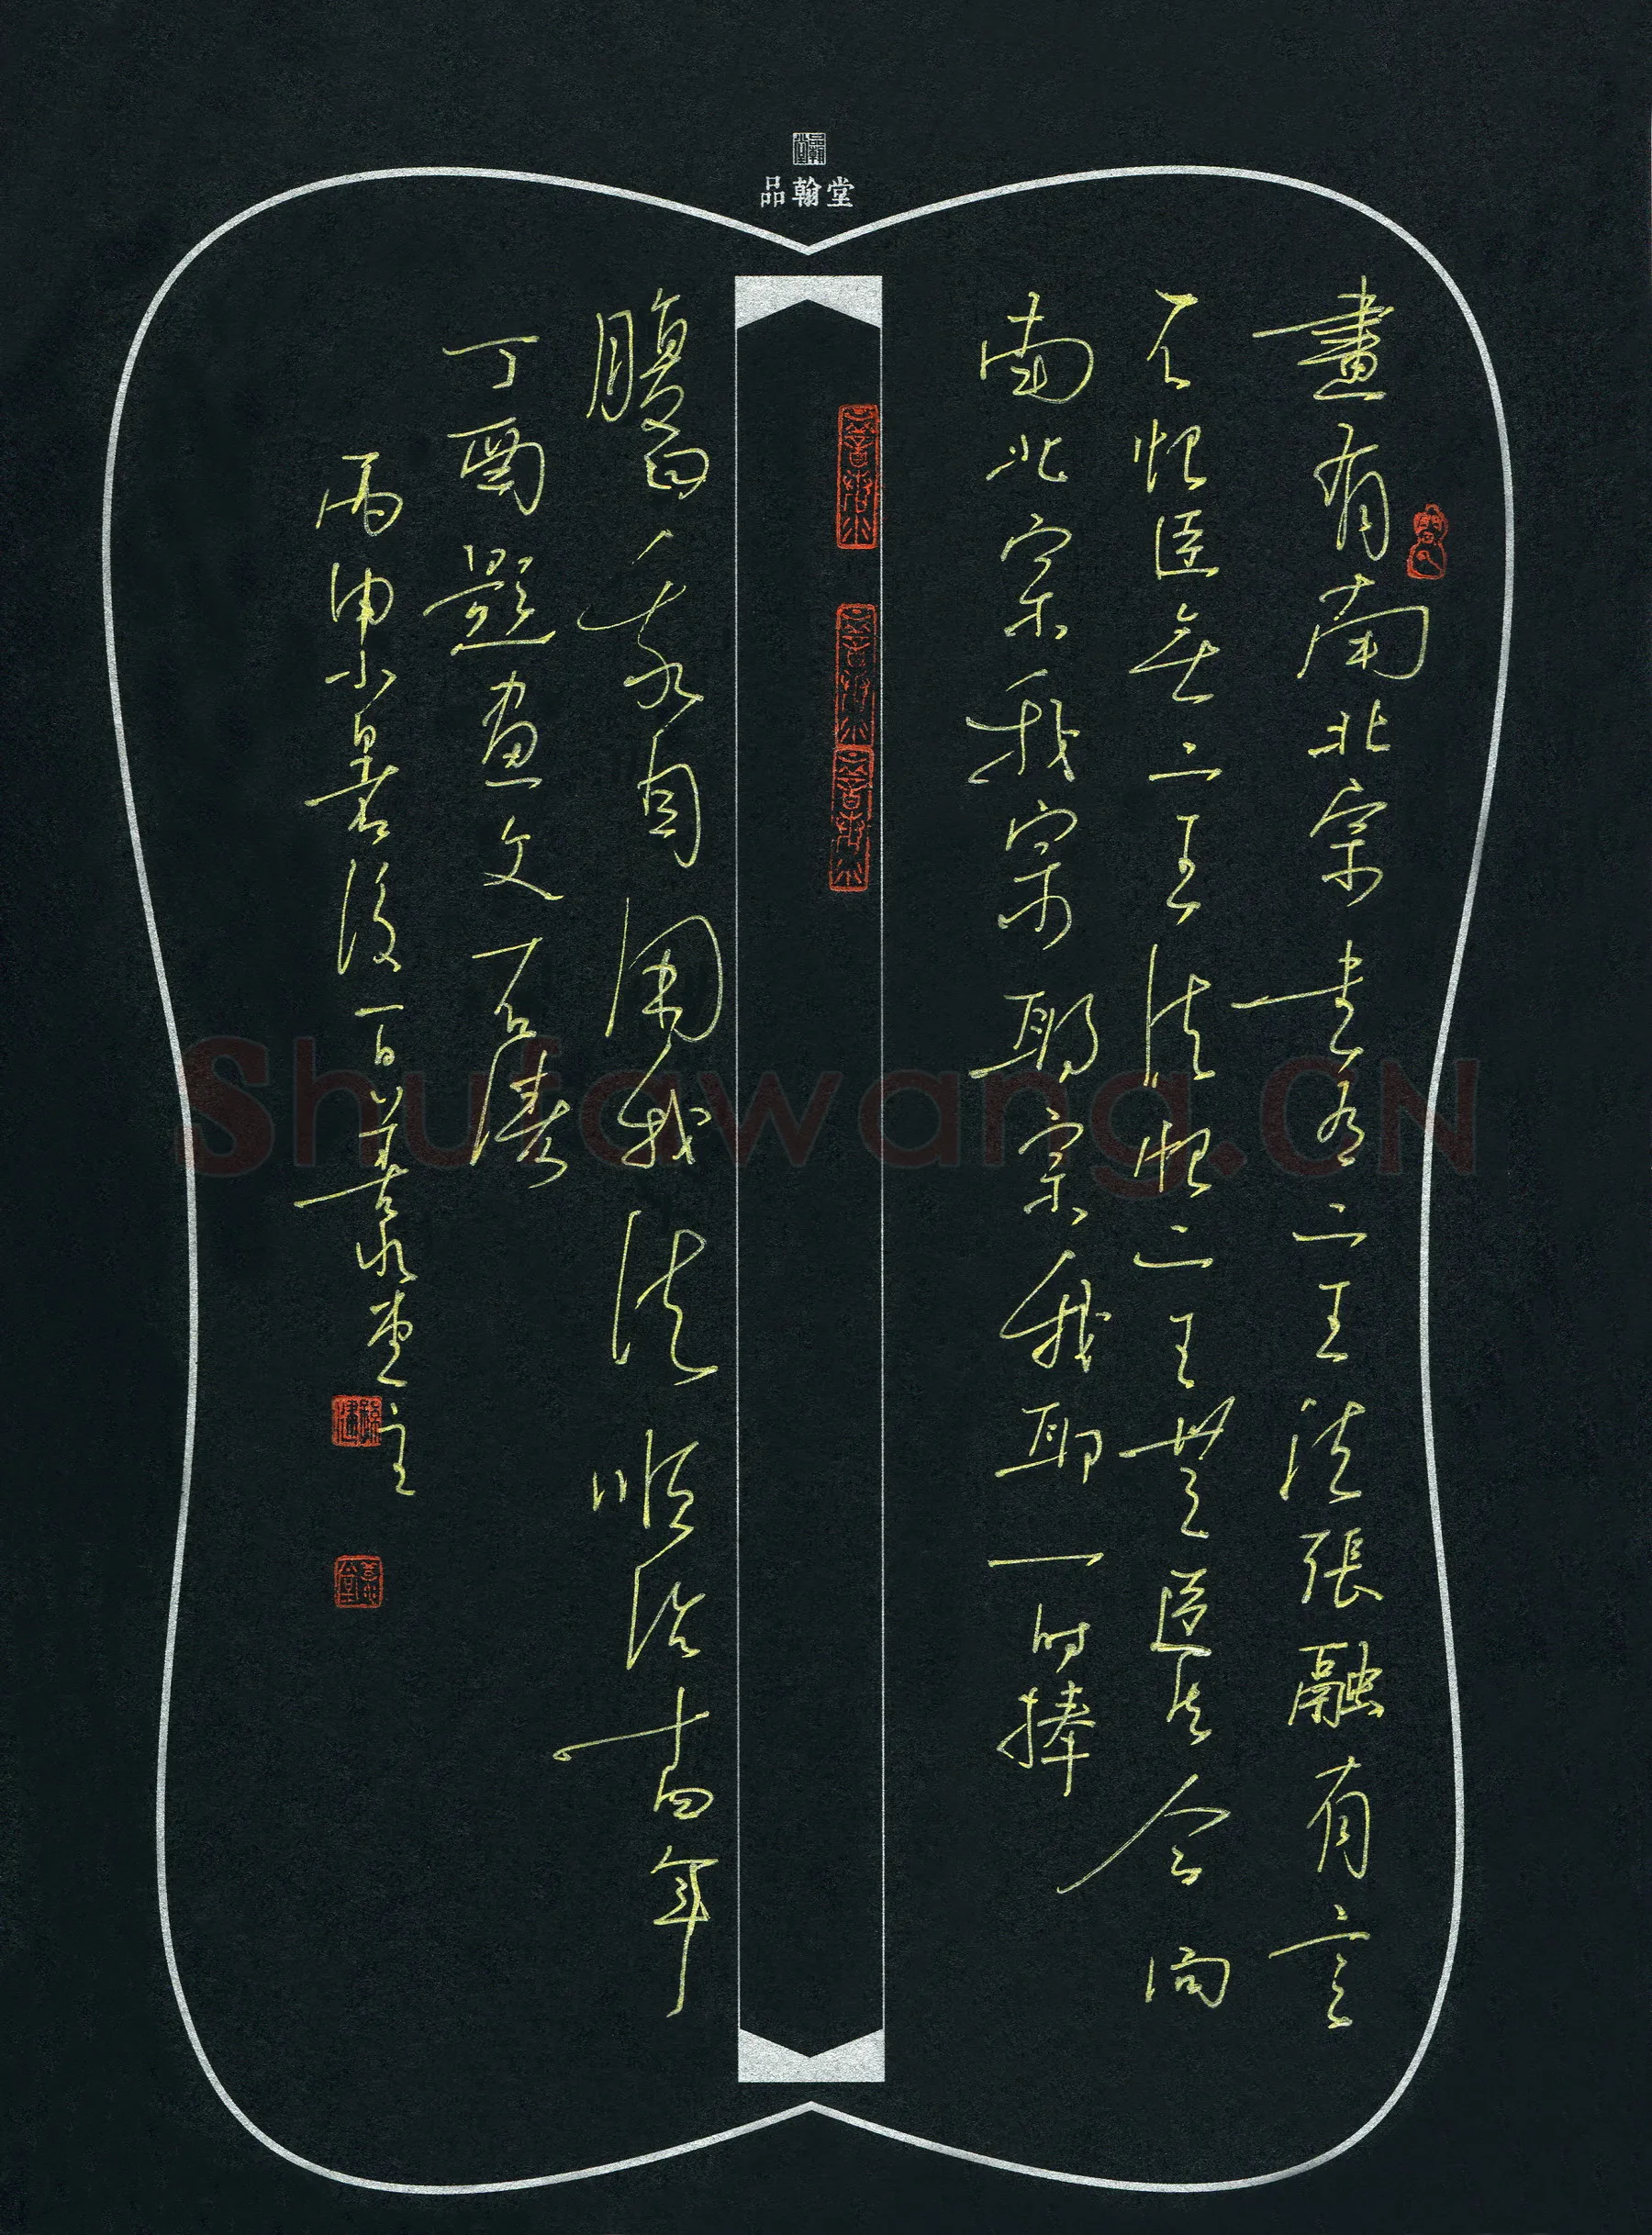 品翰堂
畫有南北宗書有二王法張融有言
不恨臣無二王法恨二王無臣法今問
南北宗我宗耶宗我耶一時捧
腹曰我自用我法順治十四年
丁酉題畫文石濤
丙申小暑後一日善若水堂主
Shufawang.CN